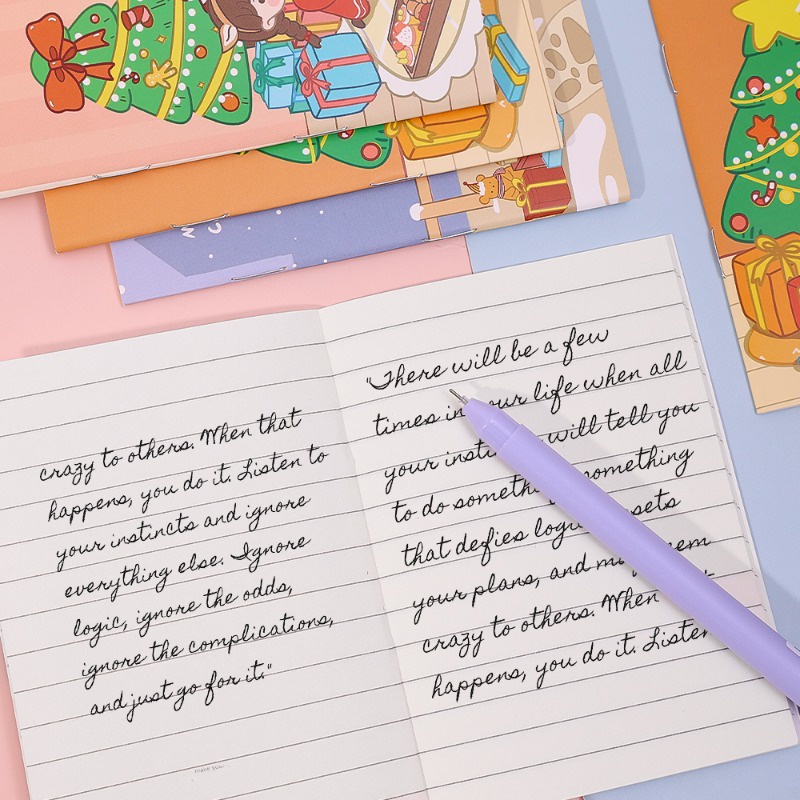 crazy to others. When that
happens, you do it. Listen to
your instincts and ignore
everything else. Ignore
logic, ignore the odds,
ignore the complications,
and just go for it."
"There will be a few
times in your life when all
your will tell you
to do something
that defies
your plans, and
crazy to others. When
happens, you do it. Listen